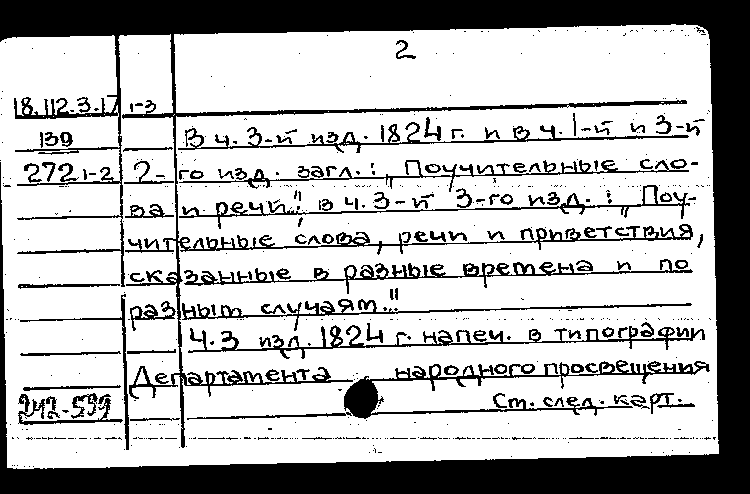 2
18.112.3.17 1-3
139 В ч. 3-й изд. 1824 г. и в ч. 1-й и 3-й
272 1-2 2-го изд. загл.: „Поучительные сло-
ва и речи..." в ч. 3-й 3-го изд.: „Поу-
чительные слова, речи и приветствия,
сказанные в разные времена и по
разным случаям..."
Ч. 3 изд. 1824 г. напеч. в типографии
Департамента народного просвещения
Ст. след. карт.